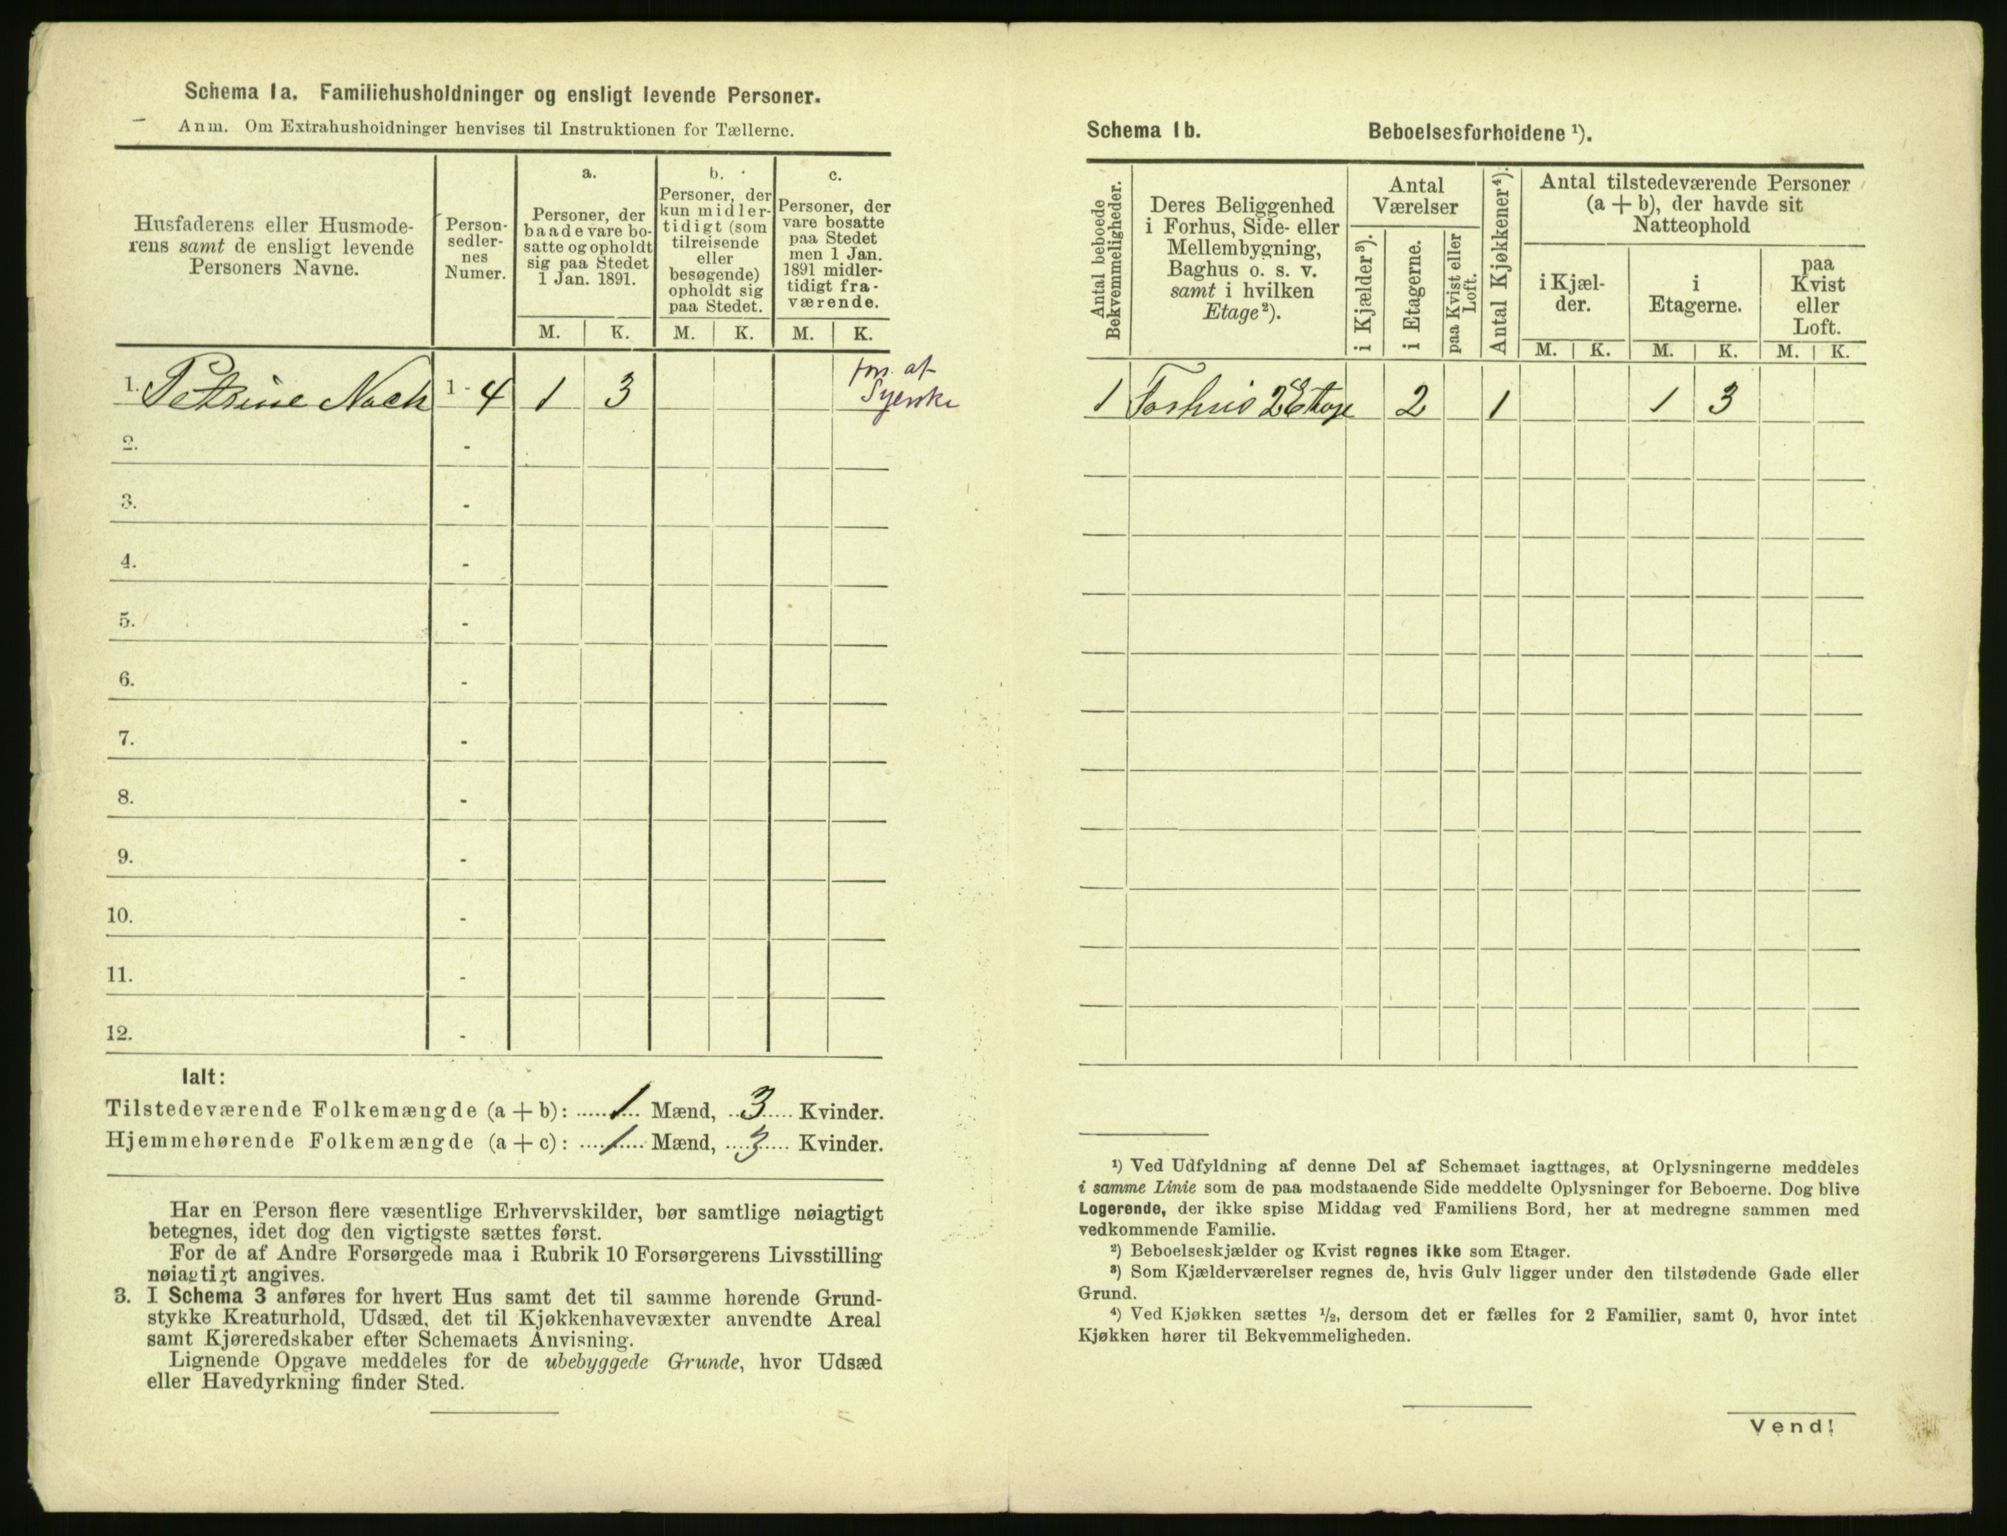 Schema 1a. Familiehusholdninger og ensligt levende Personer.
Anm. Om Extrahusholdninger henvises til Instruktionen for Tællerne.
Husfaderens eller Husmode-
rens samt de ensligt levende
Personers Navne.
Person-
sedler-
nes
Numer.
a.
Personer, der
baade vare bo-
satte og opholdt
sig paa Stedet
1 Jan. 1891.
b.
Personer, der
kun midler-
tidigt (som
tilreisende
eller
besøgende)
opholdt sig
paa Stedet.
c.
Personer, der
vare bosatte
paa Stedet
men 1 Jan.
1891 midler-
tidigt fra-
værende.
M. K. M. K. M. K.
1. Petrine 1 - 4 1 3
2. -
3. -
4. -
5. -
6. -
7. -
8. -
9. -
10. -
11. -
12. -
Ialt:
Tilstedeværende Folkemængde (a + b): 1 Mænd, 3 Kvinder.
Hjemmehørende Folkemængde (a + c): 1 Mænd, 3 Kvinder.
Har en Person flere væsentlige Erhvervskilder, bør samtlige nøiagtigt
betegnes, idet dog den vigtigste sættes først.
For de af Andre Forsørgede maa i Rubrik 10 Forsørgerens Livsstilling
nøiagtigt angives.
3. I Schema 3 anføres for hvert Hus samt det til samme hørende Grund-
stykke Kreaturhold, Udsæd, det til Kjøkkenhavevæxter anvendte Areal
samt Kjøreredskaber efter Schemaets Anvisning.
Lignende Opgave meddeles for de ubebyggede Grunde, hvor Udsæd
eller Havedyrkning finder Sted.
Schema 1b. Beboelsesforholdene ¹).
Antal beboede
Bekvemmeligheder.
Deres Beliggenhed
i Forhus, Side- eller
Mellembygning,
Baghus o. s. v.
samt i hvilken
Etage²).
Antal
Værelser
i Kjælder³).
i Etagerne.
paa Kvist eller
Loft.
Antal Kjøkkener⁴).
Antal tilstedeværende Personer
(a + b), der havde sit
Natteophold
i Kjæl-
der.
i
Etagerne.
paa
Kvist
eller
Loft.
M. K. M. K. M. K.
1 Forhus 2 Etage 2 1 1 3
¹) Ved Udfyldning af denne Del af Schemaet iagttages, at Oplysningerne meddeles
i samme Linie som de paa modstaaende Side meddelte Oplysninger for Beboerne. Dog blive
Logerende, der ikke spise Middag ved Familiens Bord, her at medregne sammen med
vedkommende Familie.
²) Beboelseskjælder og Kvist regnes ikke som Etager.
³) Som Kjælderværelser regnes de, hvis Gulv ligger under den tilstødende Gade eller
Grund.
⁴) Ved Kjøkken sættes ½, dersom det er fælles for 2 Familier, samt 0, hvor intet
Kjøkken hører til Bekvemmeligheden.
Vend!